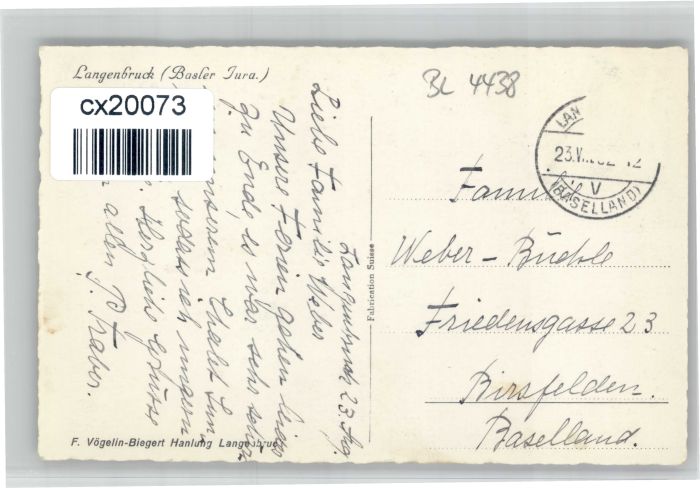 Langenbruck (Basler Jura.)
cx20073
BL 4438
LAN
23.V
(BASELLAND)
Langenbruck 23. Aug.
Liebe Familie Weber
Unsere Ferien gehen
zu Ende, es war sehr schön
unserem Chalet
sodass ich ungern
Herzliche Grüsse
allen
Fabrication Suisse
Weber-Büchle
Friedensgasse 23
Birsfelden.
Baselland.
F. Vögelin-Biegert Hanlung Langenbruck